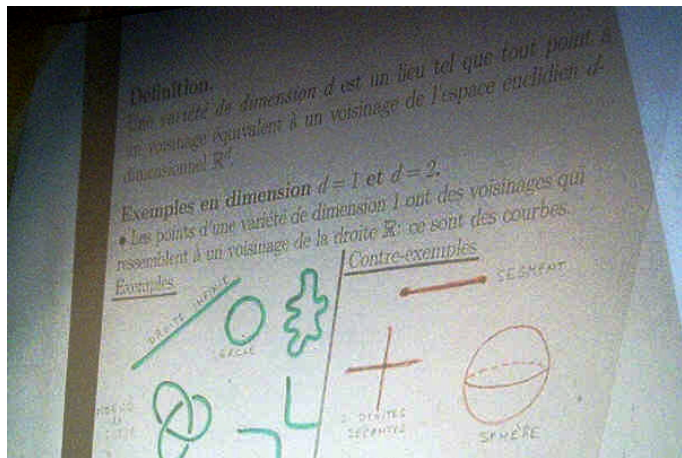 Définition.
Une variété de dimension d est un lieu tel que tout point a
un voisinage équivalent à un voisinage de l'espace euclidien d-
dimensionnel ℝᵈ.
Exemples en dimension d = 1 et d = 2.
• Les points d'une variété de dimension 1 ont des voisinages qui
ressemblent à un voisinage de la droite ℝ: ce sont des courbes.
Exemples
Contre-exemples
DROITE INFINIE
CERCLE
SEGMENT
2 DROITES
SÉCANTES
SPHÈRE